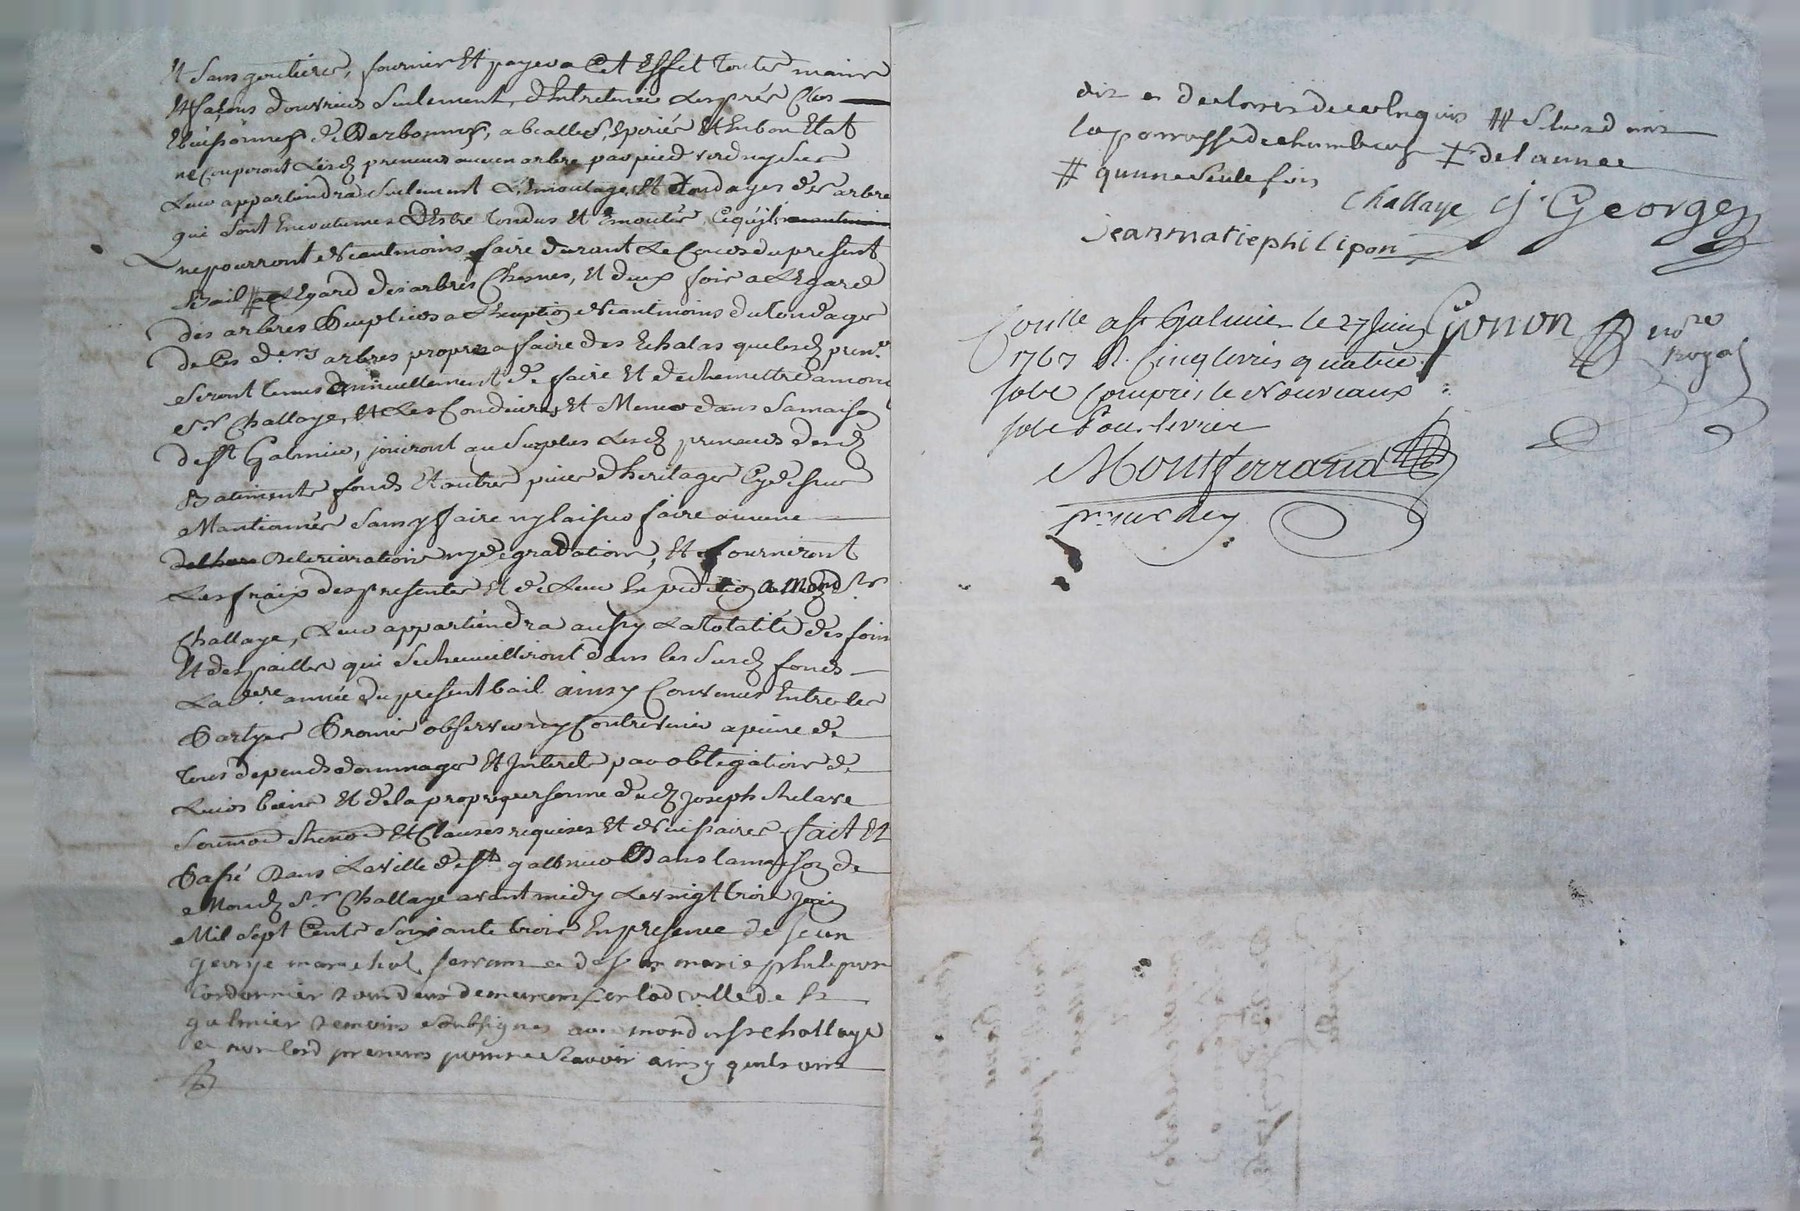 Et sans goutieres, fournir Et payer a Cet Effet Toutes mains
Et façons d'ouvriers Seulement, d'Entretenir Les prés Clos
Et en bon Etat
ne Couperont Lesd preneurs aucun arbre par pied verd ny Sec
Leur appartiendra Seulement L'Emoutage Et tondages des arbres
qui Sont En coutumes D'Estre Tondus Et Emoutés, Ce qu'ils
ne pourront Neantmoins faire durant Le Cours du present
Bail # a L'Egard des arbres Chesnes, Et deux fois a L'Egard
des arbres Peupliers a L'Exception Neantmoins du tondage
de Ces derrs arbres propres a faire des Echalas que lesd prenrs
Seront Tenus annuellement de faire Et de remettre a mond
Sr Challaye, Et Les Conduire, Et Mener dans Sa maison
de St Galmier, jouiront au Surplus Lesd preneurs desd
Batiments fonds Et autres pieces d'heritages Cy dessus
Mantionnés Sans y faire ny laisser faire aucune
Deterioration ny degradation, Et fourniront
Les fraix des presentes Et de Leur Expedition a Mond Sr
Challaye, Leur appartiendra aussy La Totalité des foins
Et des pailles qui Se Receuilliront dans les Susd fonds
La dere année du present bail ainsy Convenus Entre les
Partyes Promis observer ny Contrevenir a peine de
Tous depends dommages Et Interets par obligation de
Leurs biens Et de la propre personne dud Joseph
Et Clauses requises Et Necessaires fait Et
Passé Dans La ville de St Galmier Dans la maison de
Mond Sr Challaye avant midy Le vingt trois juin
Mil Sept Cents Soixante trois En presence de Jean
george marechal ferrant et de Jean marie philipon
Cordonnier demeurans en lad ville de St
galmier temoins Soubsignes avec mond sr challaye
et non lesd preneurs pour ne Scavoir ainsy quils ont
dit et
la parroisse de chambeuf de l'année
# qu'une Seule fois
Challaye J. George
jean marie philipon
Conttle a St Galmier le 27 juin Gonon nore
1763 R. Cinq livres quatre Royal
sols Compris le Nouveaux
sols Pour livre
Montferrand